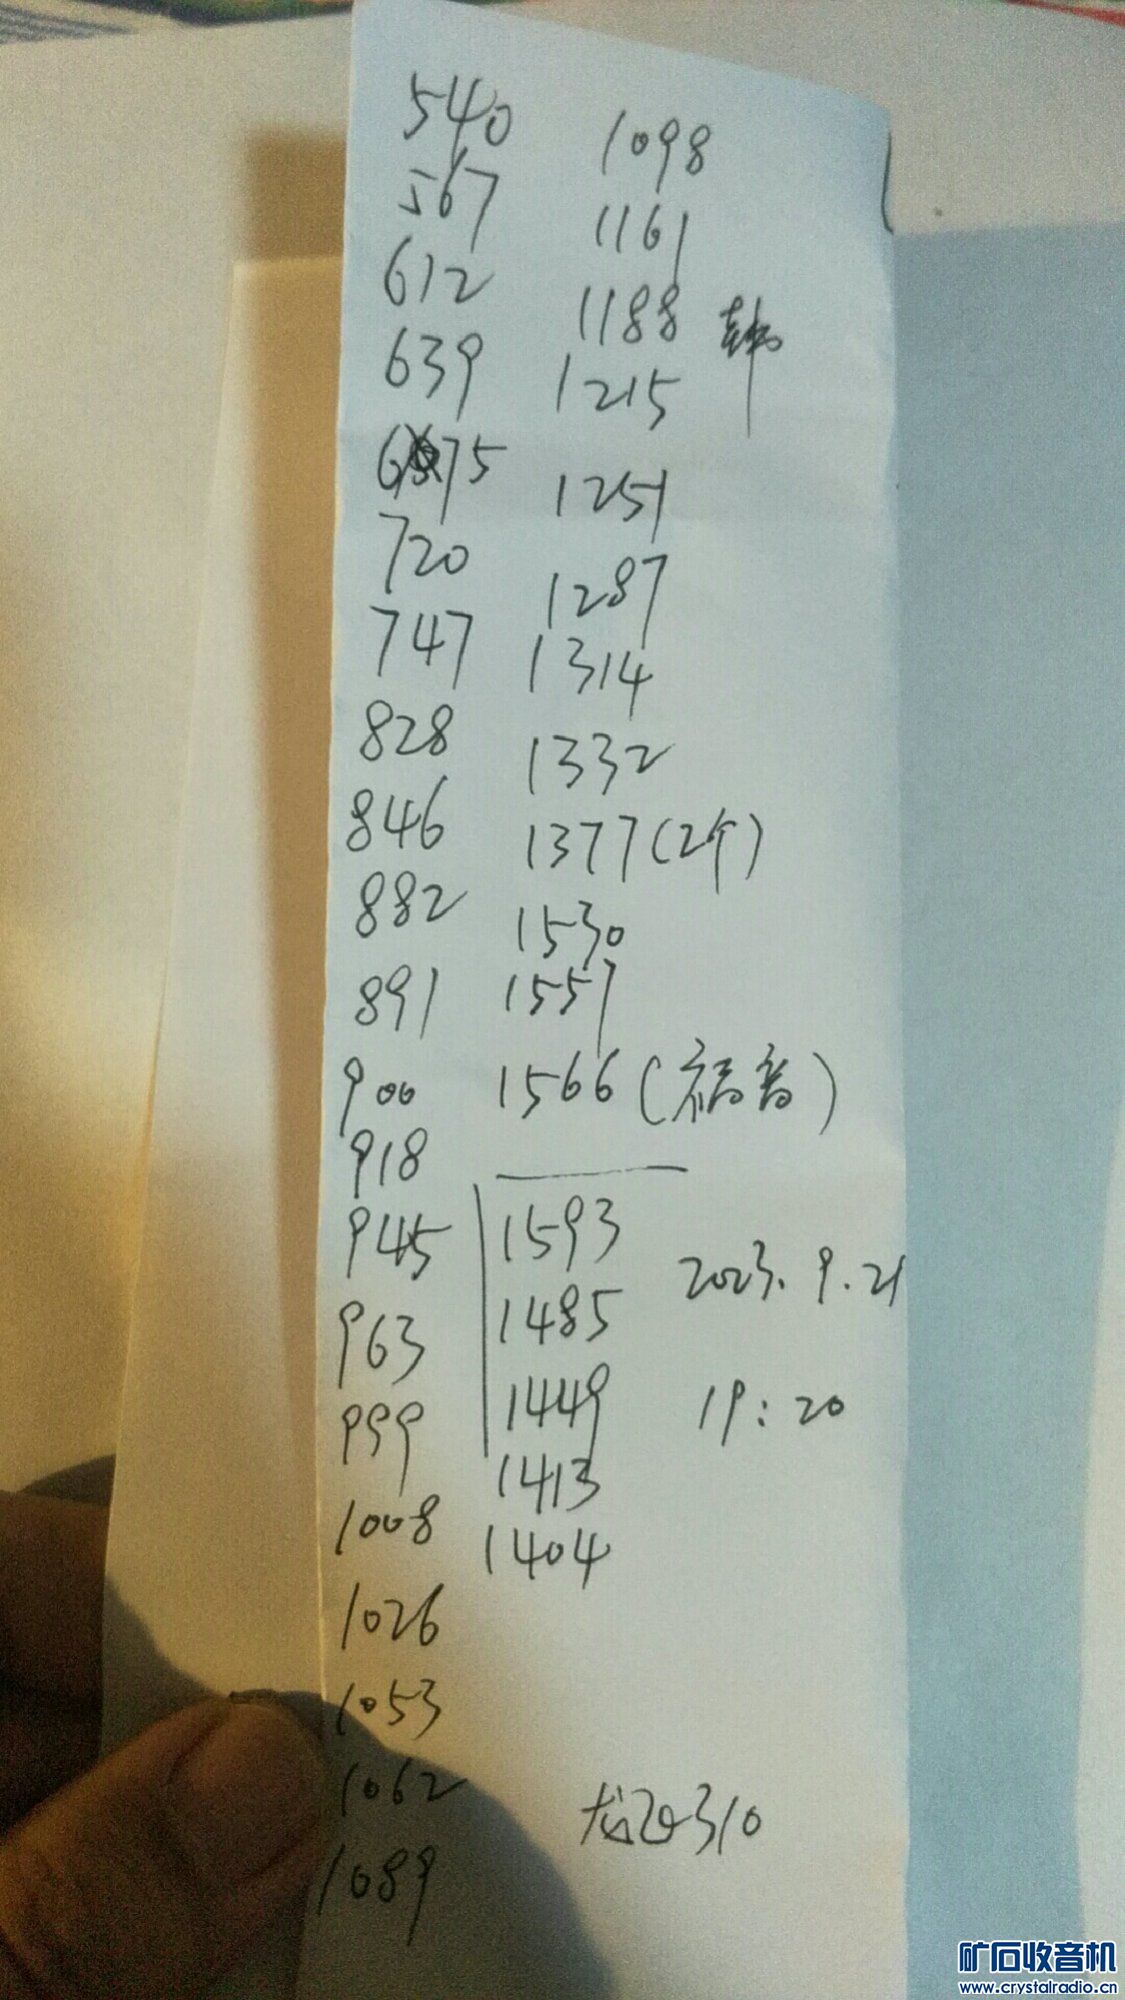 540
567
612
639
675
720
747
828
846
882
891
900
918
945
963
999
1008
1026
1053
1062
1089
1098
1161
1188 韩
1215
1251
1287
1314
1332
1377(2个)
1530
1557
1566(福音)
1593
1485
1449
1413
1404
2023.9.21
19:20
310
矿石收音机
www.crystalradio.cn